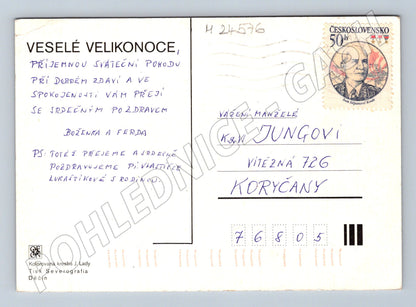 M 24576
ČESKOSLOVENSKO
50h
VESELÉ VELIKONOCE,
PŘÍJEMNOU SVÁTEČNÍ POHODU
PŘI DOBRÉM ZDRAVÍ A VE
SPOKOJENOSTI VÁM PŘEJÍ
SE SRDEČNÝM POZDRAVEM
BOŽENKA A FERDA
PS: TOTÉŽ PŘEJEME A SRDEČNĚ
POZDRAVUJEME PÍ VLASTIČKU
LUKAŠTÍKOVÉ S RODINOU.
VÁŽENÍ MANŽELÉ
JUNGOVI
VÍTĚZNÁ 726
KORYČANY
76805
Kolorovaná kresba J. Lady
Tisk Severografia
Děčín
POHLEDNICE - GALU